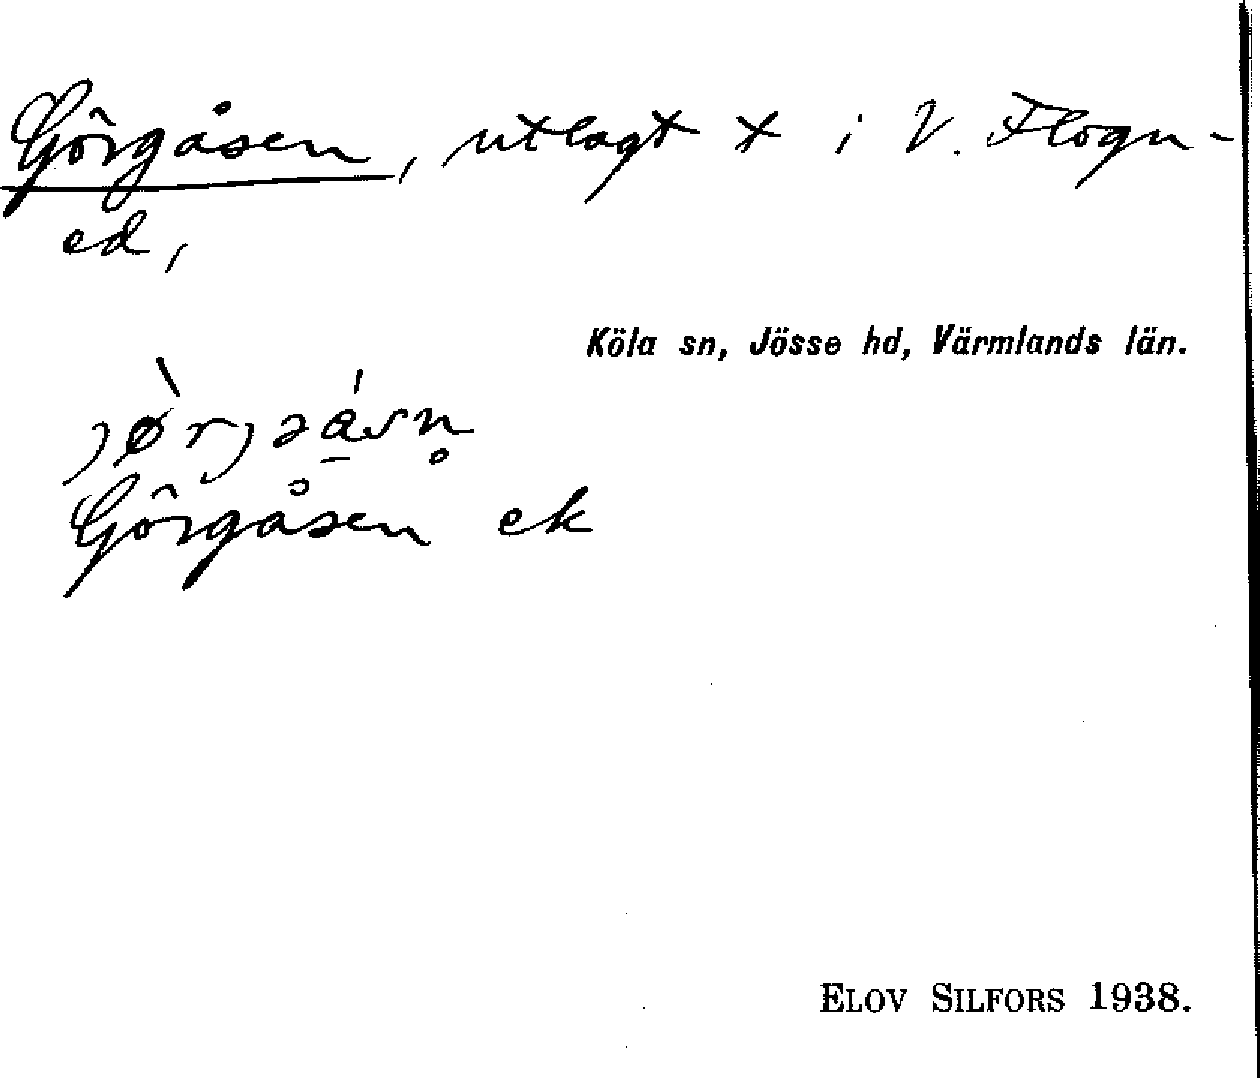 Görgåsen, utlagt x i V. Flogn-
ed,
Köla sn, Jösse hd, Värmlands län.
Görgåsen ek
ELOV SILFORS 1938.